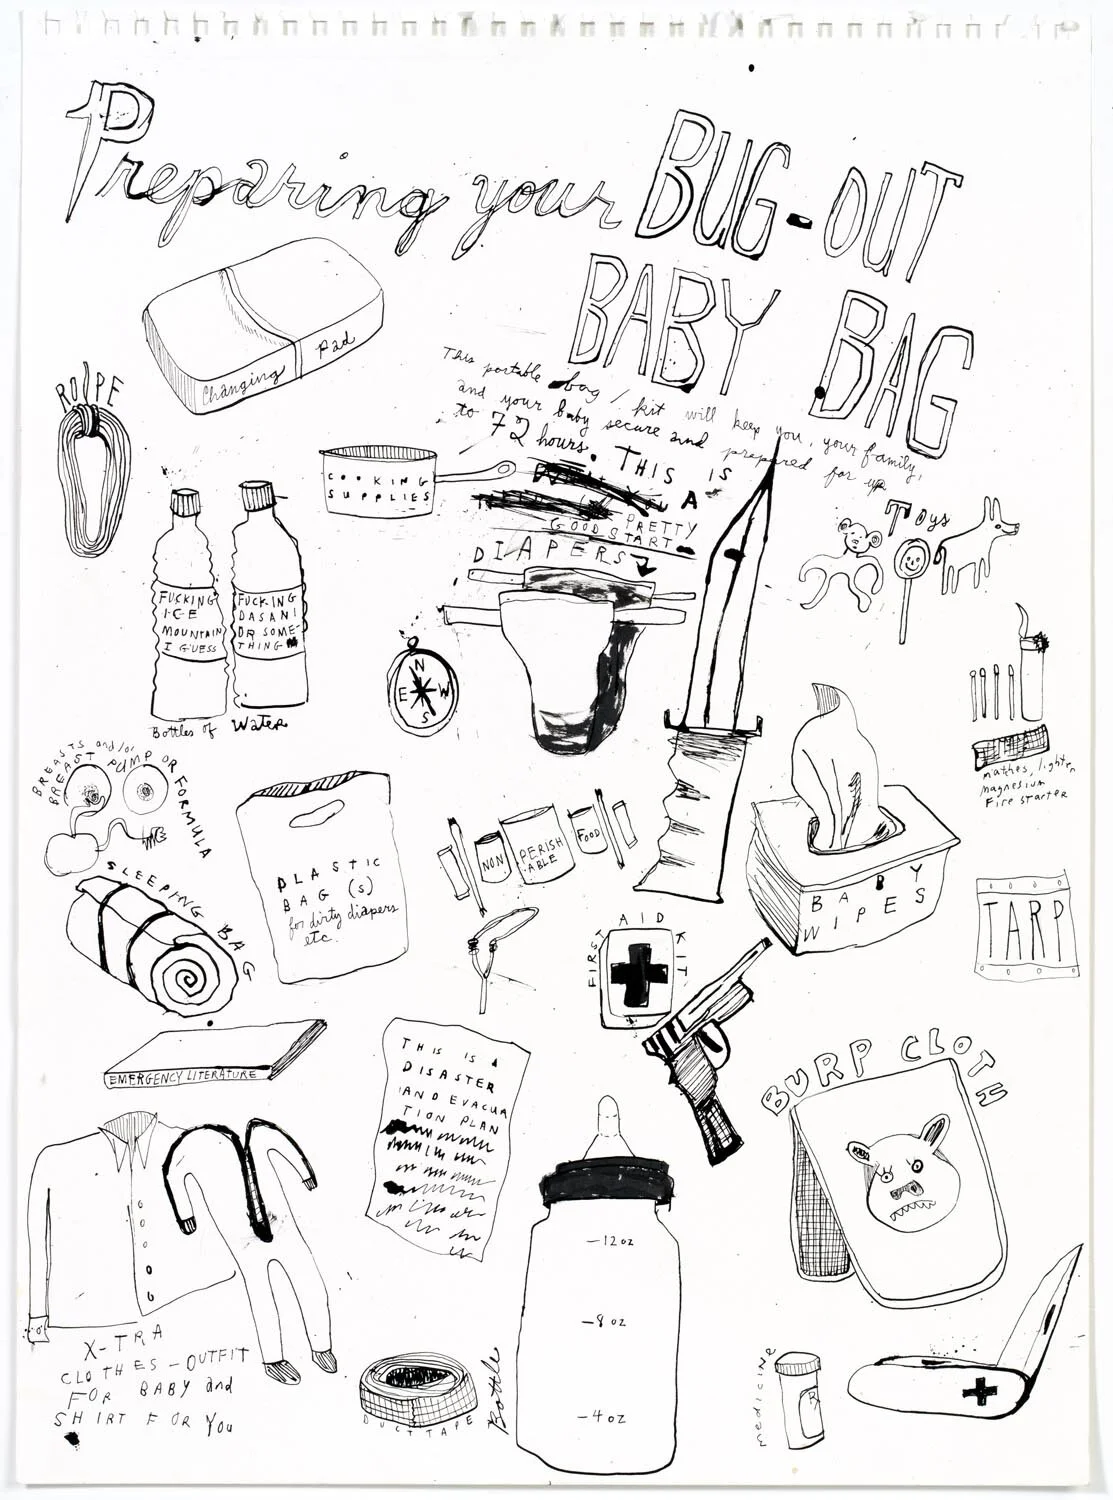 Preparing your BUG-OUT
BABY BAG
This portable bag / kit will keep you, your family,
and your baby secure and prepared for up
to 72 hours. THIS IS
A
PRETTY
GOOD START
Changing Pad
ROPE
COOKING
SUPPLIES
DIAPERS
Toys
FUCKING
ICE
MOUNTAIN
I GUESS
FUCKING
DASANI
OR SOME-
THING
Bottles of Water
N
E W
S
matches, lighter,
magnesium
Fire starter
BREASTS and/or
BREAST PUMP OR FORMULA
PLASTIC
BAG (s)
for dirty diapers
etc.
NON
PERISH
-ABLE
FOOD
BABY
WIPES
SLEEPING BAG
FIRST AID KIT
TARP
EMERGENCY LITERATURE
THIS IS A
DISASTER
AND EVACUA
TION PLAN
BURP CLOTH
-12 oz
-8 oz
-4 oz
Bottle
X-TRA
CLOTHES-OUTFIT
FOR BABY and
SHIRT FOR You
DUCT TAPE
medicine
Rx